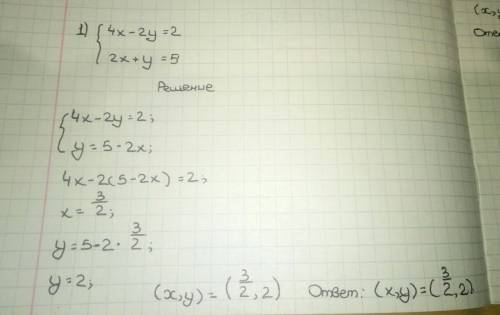 1) { 4x-2y=2
2x+y=5
Решение
{ 4x-2y=2;
y=5-2x;
4x-2(5-2x)=2;
x=3/2;
y=5-2·3/2;
y=2; (x,y)=(3/2,2) Ответ: (x,y)=(3/2,2)
(x,y
Отве